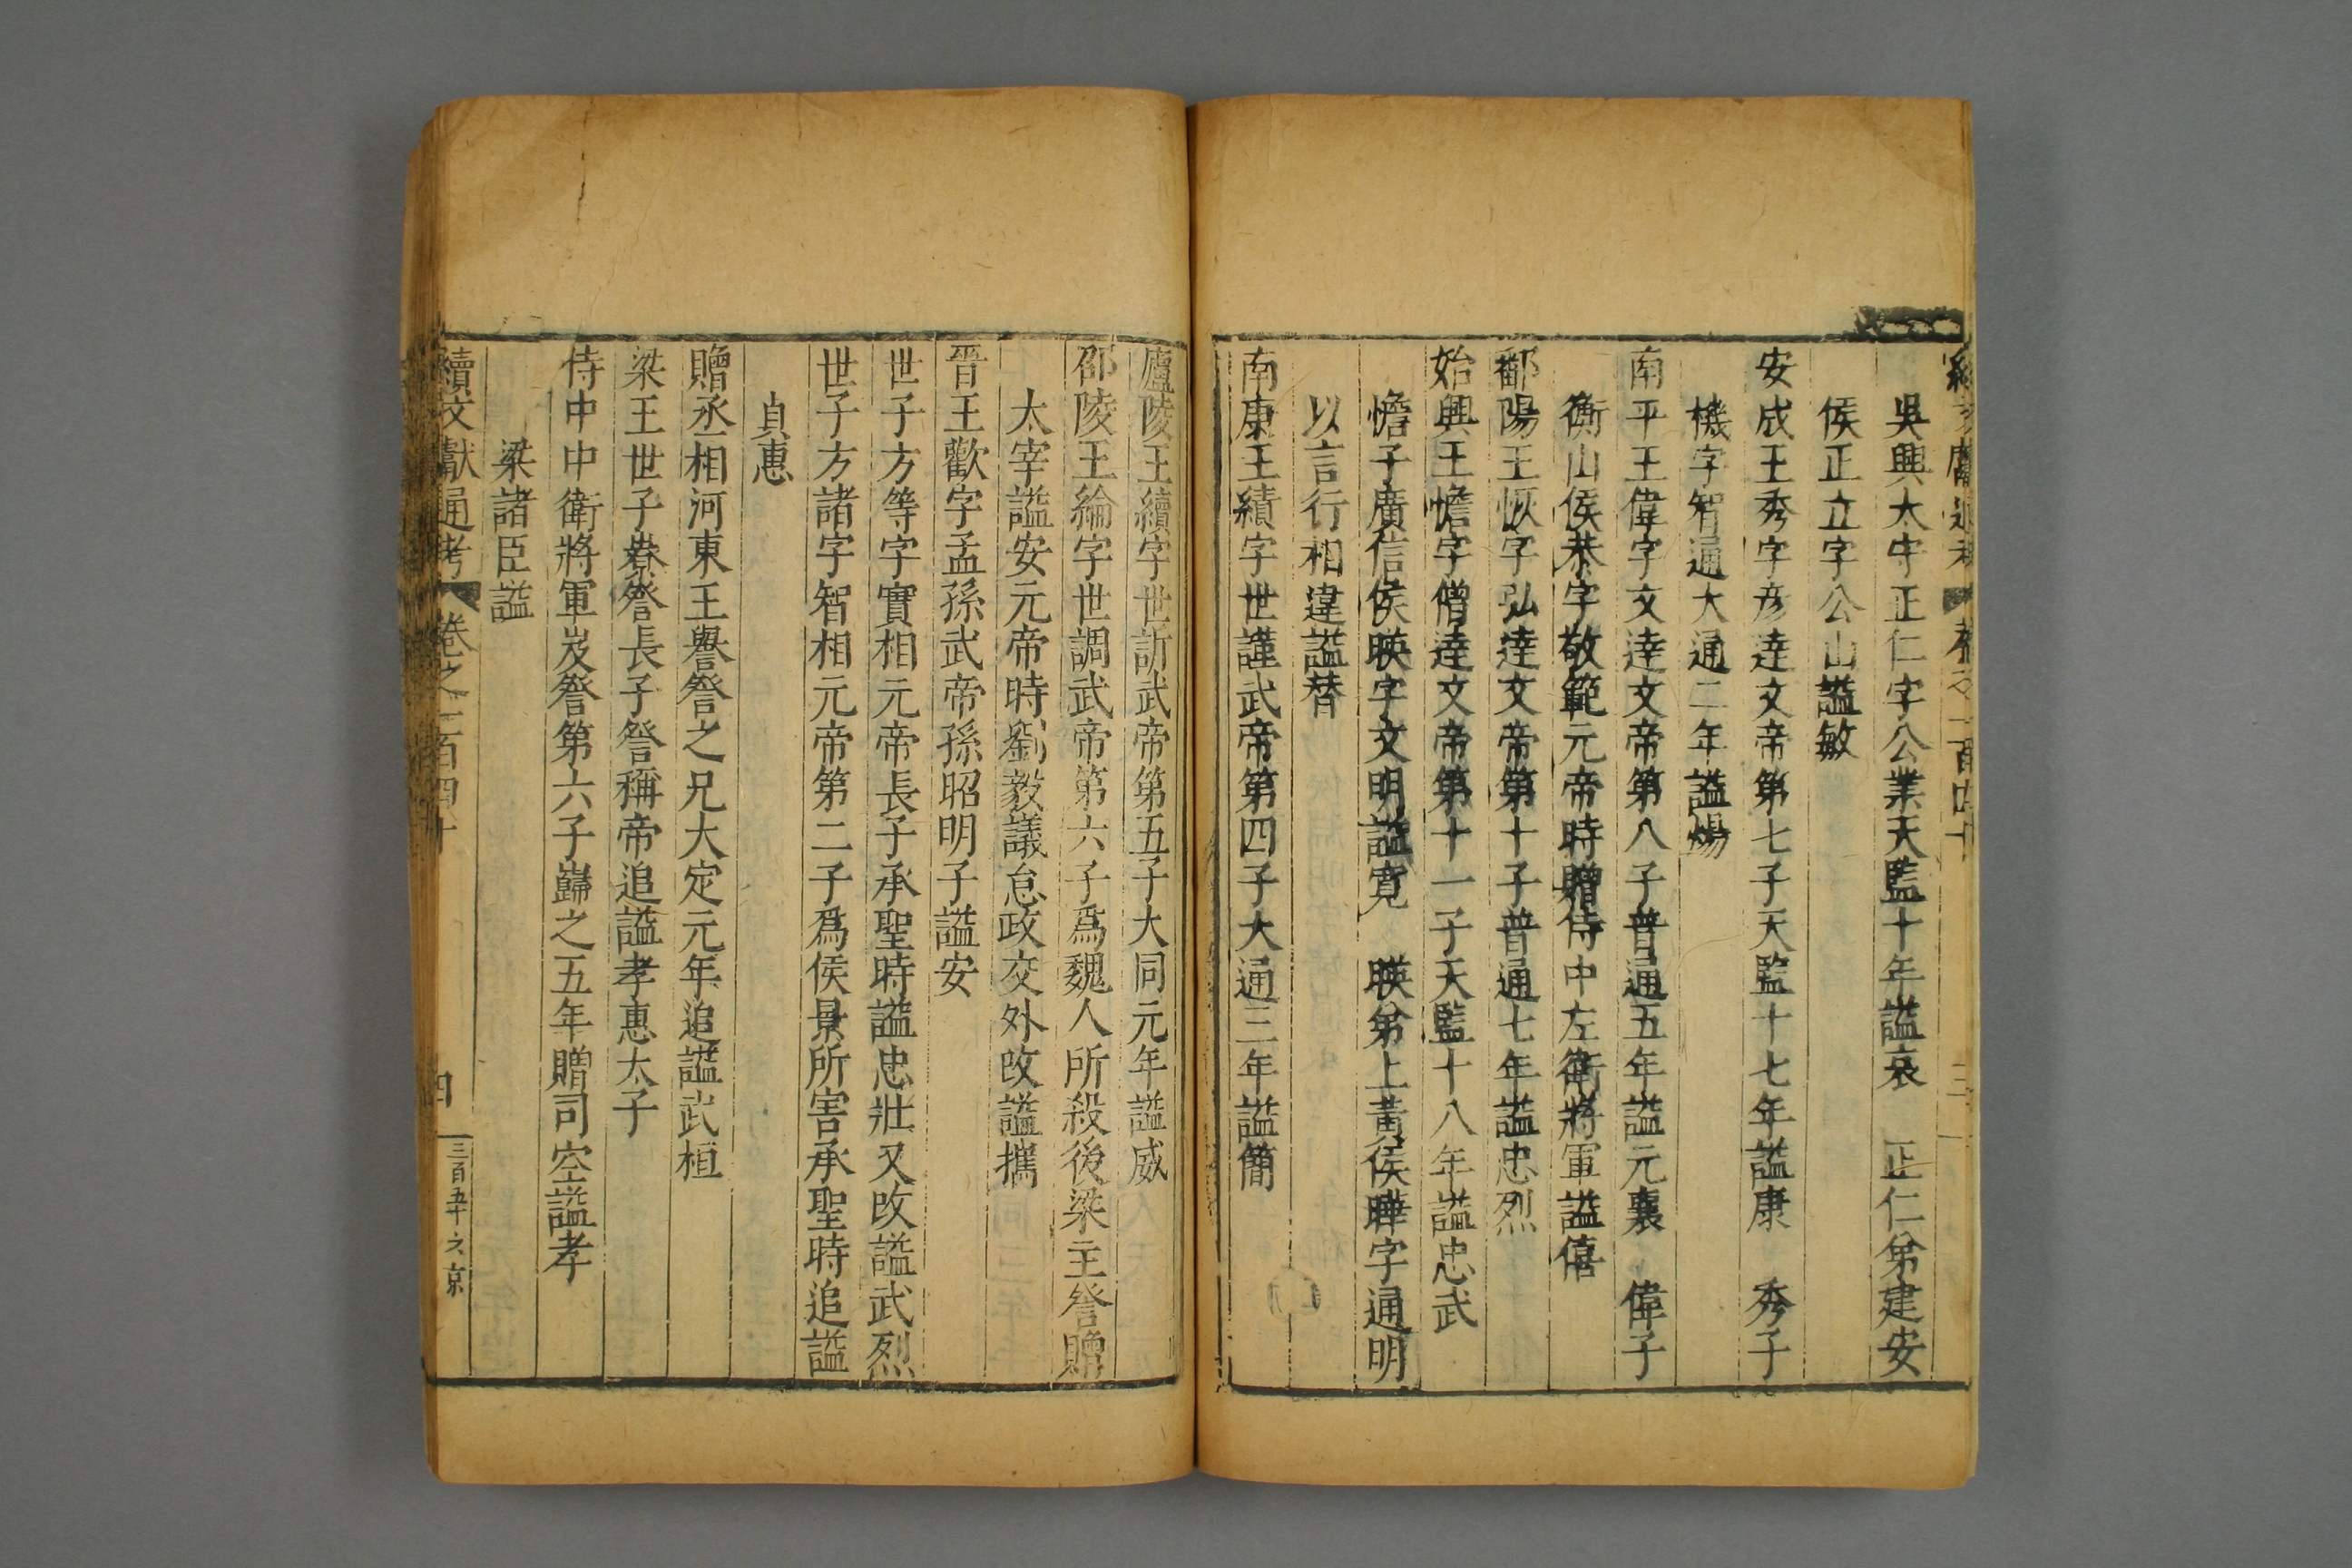 吳興太守正仁字公業天監十年謚哀　正仁弟建安
侯正立字公山謚敏
安成王秀字彦逹文帝第七子天監十七年謚康　秀子
機字智通大通二年謚煬
南平王偉字文逹文帝第八子普通五年謚元襄　偉子
衡山侯恭字敬範元帝時贈侍中左衛將軍謚僖
鄱陽王恢字弘逹文帝第十子普通七年謚忠烈
始興王憺字僧逹文帝第十一子天監十八年謚忠武
憺子廣信侯暎字文明謚寛　暎弟上黃侯曄字通明
以言行相違謚替
南康王績字世謹武帝第四子大通三年謚簡
廬陵王續字世訢武帝第五子大同元年謚威
邵陵王綸字世調武帝第六子爲魏人所殺後梁主詧贈
太宰謚安元帝時劉毅議怠政交外改謚攜
晉王歡字孟孫武帝孫昭明子謚安
世子方等字實相元帝長子承聖時謚忠壯又改謚武烈
世子方諸字智相元帝第二子爲侯景所害承聖時追謚
貞惠
贈丞相河東王譽詧之兄大定元年追謚武桓
梁王世子嶚詧長子詧稱帝追謚孝惠太子
侍中中衛將軍岌詧第六子巋之五年贈司空謚孝
梁諸臣謚
續文獻通考　卷之一百四十　四　三百五十六　京